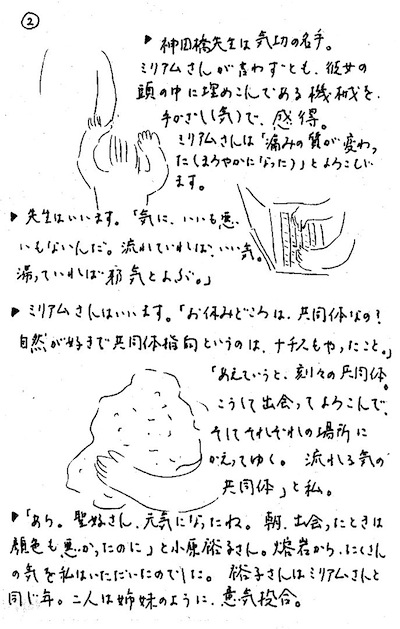 ②
▶神田橋先生は気功の名手。
ミリアムさんが言わずとも、彼女の
頭の中に埋めこんである機械を、
手かざし(気)で、感得。
ミリアムさんは「痛みの質が変わっ
た(まろやかになった)」とよろこびい
ます。
▶先生はいいます。「気に、いいも悪
いもないんだ。流れていれば、いい気。
滞っていれば邪気とよぶ。」
▶ミリアムさんはいいます。「お休みどころは、共同体なの?
自然が好きで共同体指向というのは、ナチスもやったこと。」
「あえていうと、刻々の共同体。
こうして出会ってよろこんで、
そしてそれぞれの場所に
かえってゆく。流れる気の
共同体」と私。
▶「あら。聖好さん、元気になったね。朝、出会ったときは
顔色も悪かったのに」と小原裕子さん。熔岩から、たくさん
の気を私はいただいたのでした。裕子さんはミリアムさんと
同じ年。二人は姉妹のように、意気投合。